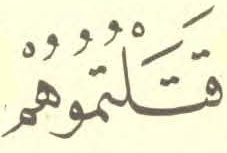 قَتَلْتُمُوُهُمْ